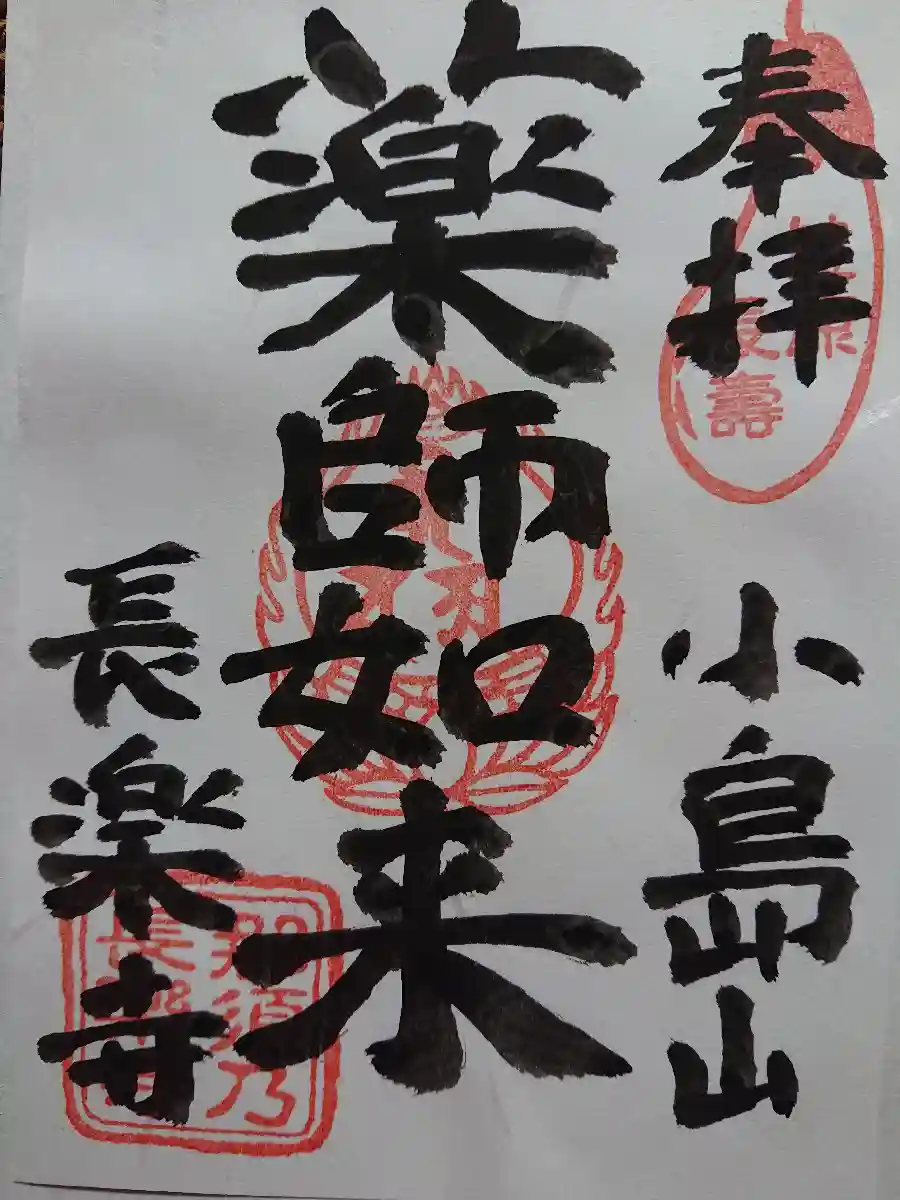 奉拝
小島山
薬師如来
長楽寺
長壽
那須乃
長楽寺